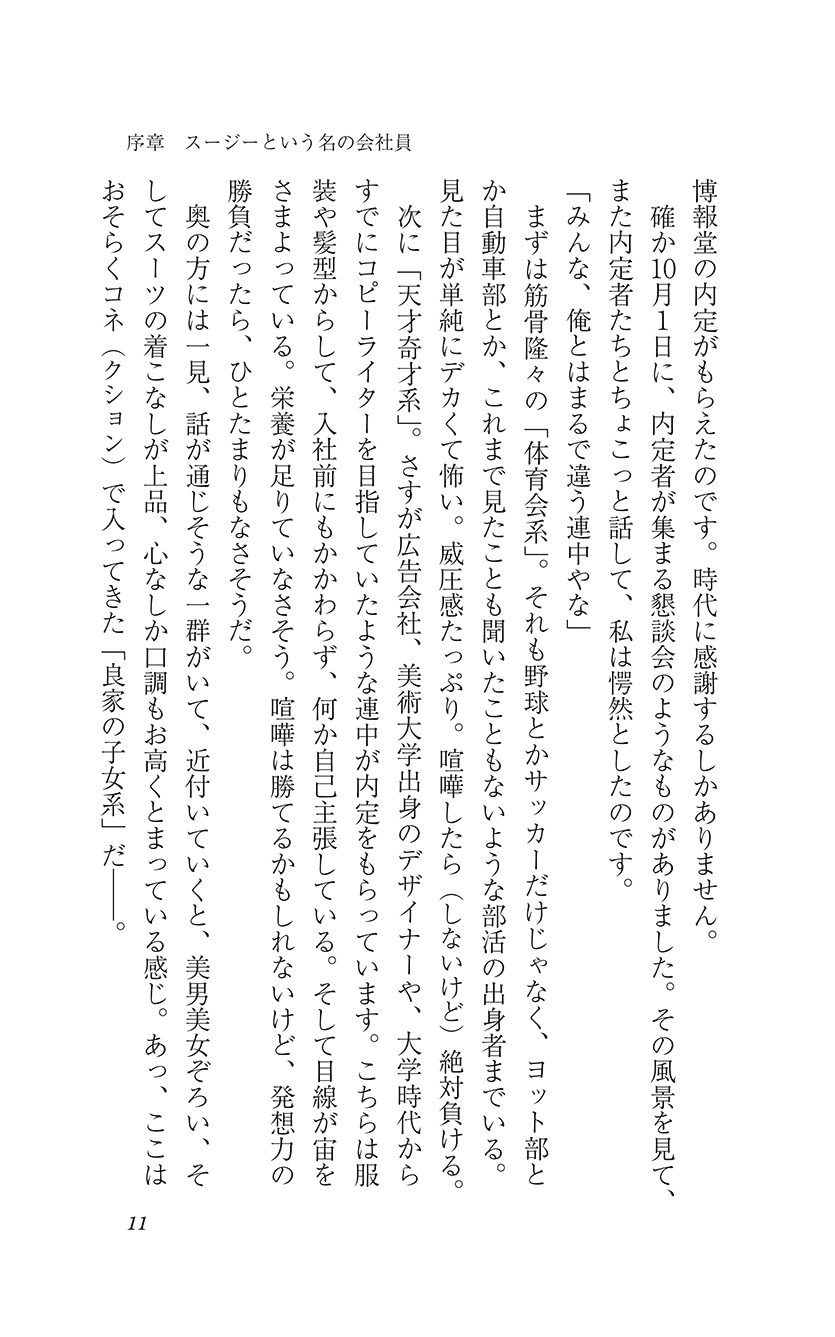 序章　スージーという名の会社員
博報堂の内定がもらえたのです。時代に感謝するしかありません。
　確か10月1日に、内定者が集まる懇談会のようなものがありました。その風景を見て、
また内定者たちとちょこっと話して、私は愕然としたのです。
「みんな、俺とはまるで違う連中やな」
　まずは筋骨隆々の「体育会系」。それも野球とかサッカーだけじゃなく、ヨット部と
か自動車部とか、これまで見たことも聞いたこともないような部活の出身者までいる。
見た目が単純にデカくて怖い。威圧感たっぷり。喧嘩したら（しないけど）絶対負ける。
　次に「天才奇才系」。さすが広告会社、美術大学出身のデザイナーや、大学時代から
すでにコピーライターを目指していたような連中が内定をもらっています。こちらは服
装や髪型からして、入社前にもかかわらず、何か自己主張している。そして目線が宙を
さまよっている。栄養が足りていなさそう。喧嘩は勝てるかもしれないけど、発想力の
勝負だったら、ひとたまりもなさそうだ。
　奥の方には一見、話が通じそうな一群がいて、近付いていくと、美男美女ぞろい、そ
してスーツの着こなしが上品、心なしか口調もお高くとまっている感じ。あっ、ここは
おそらくコネ（クション）で入ってきた「良家の子女系」だ――。
11